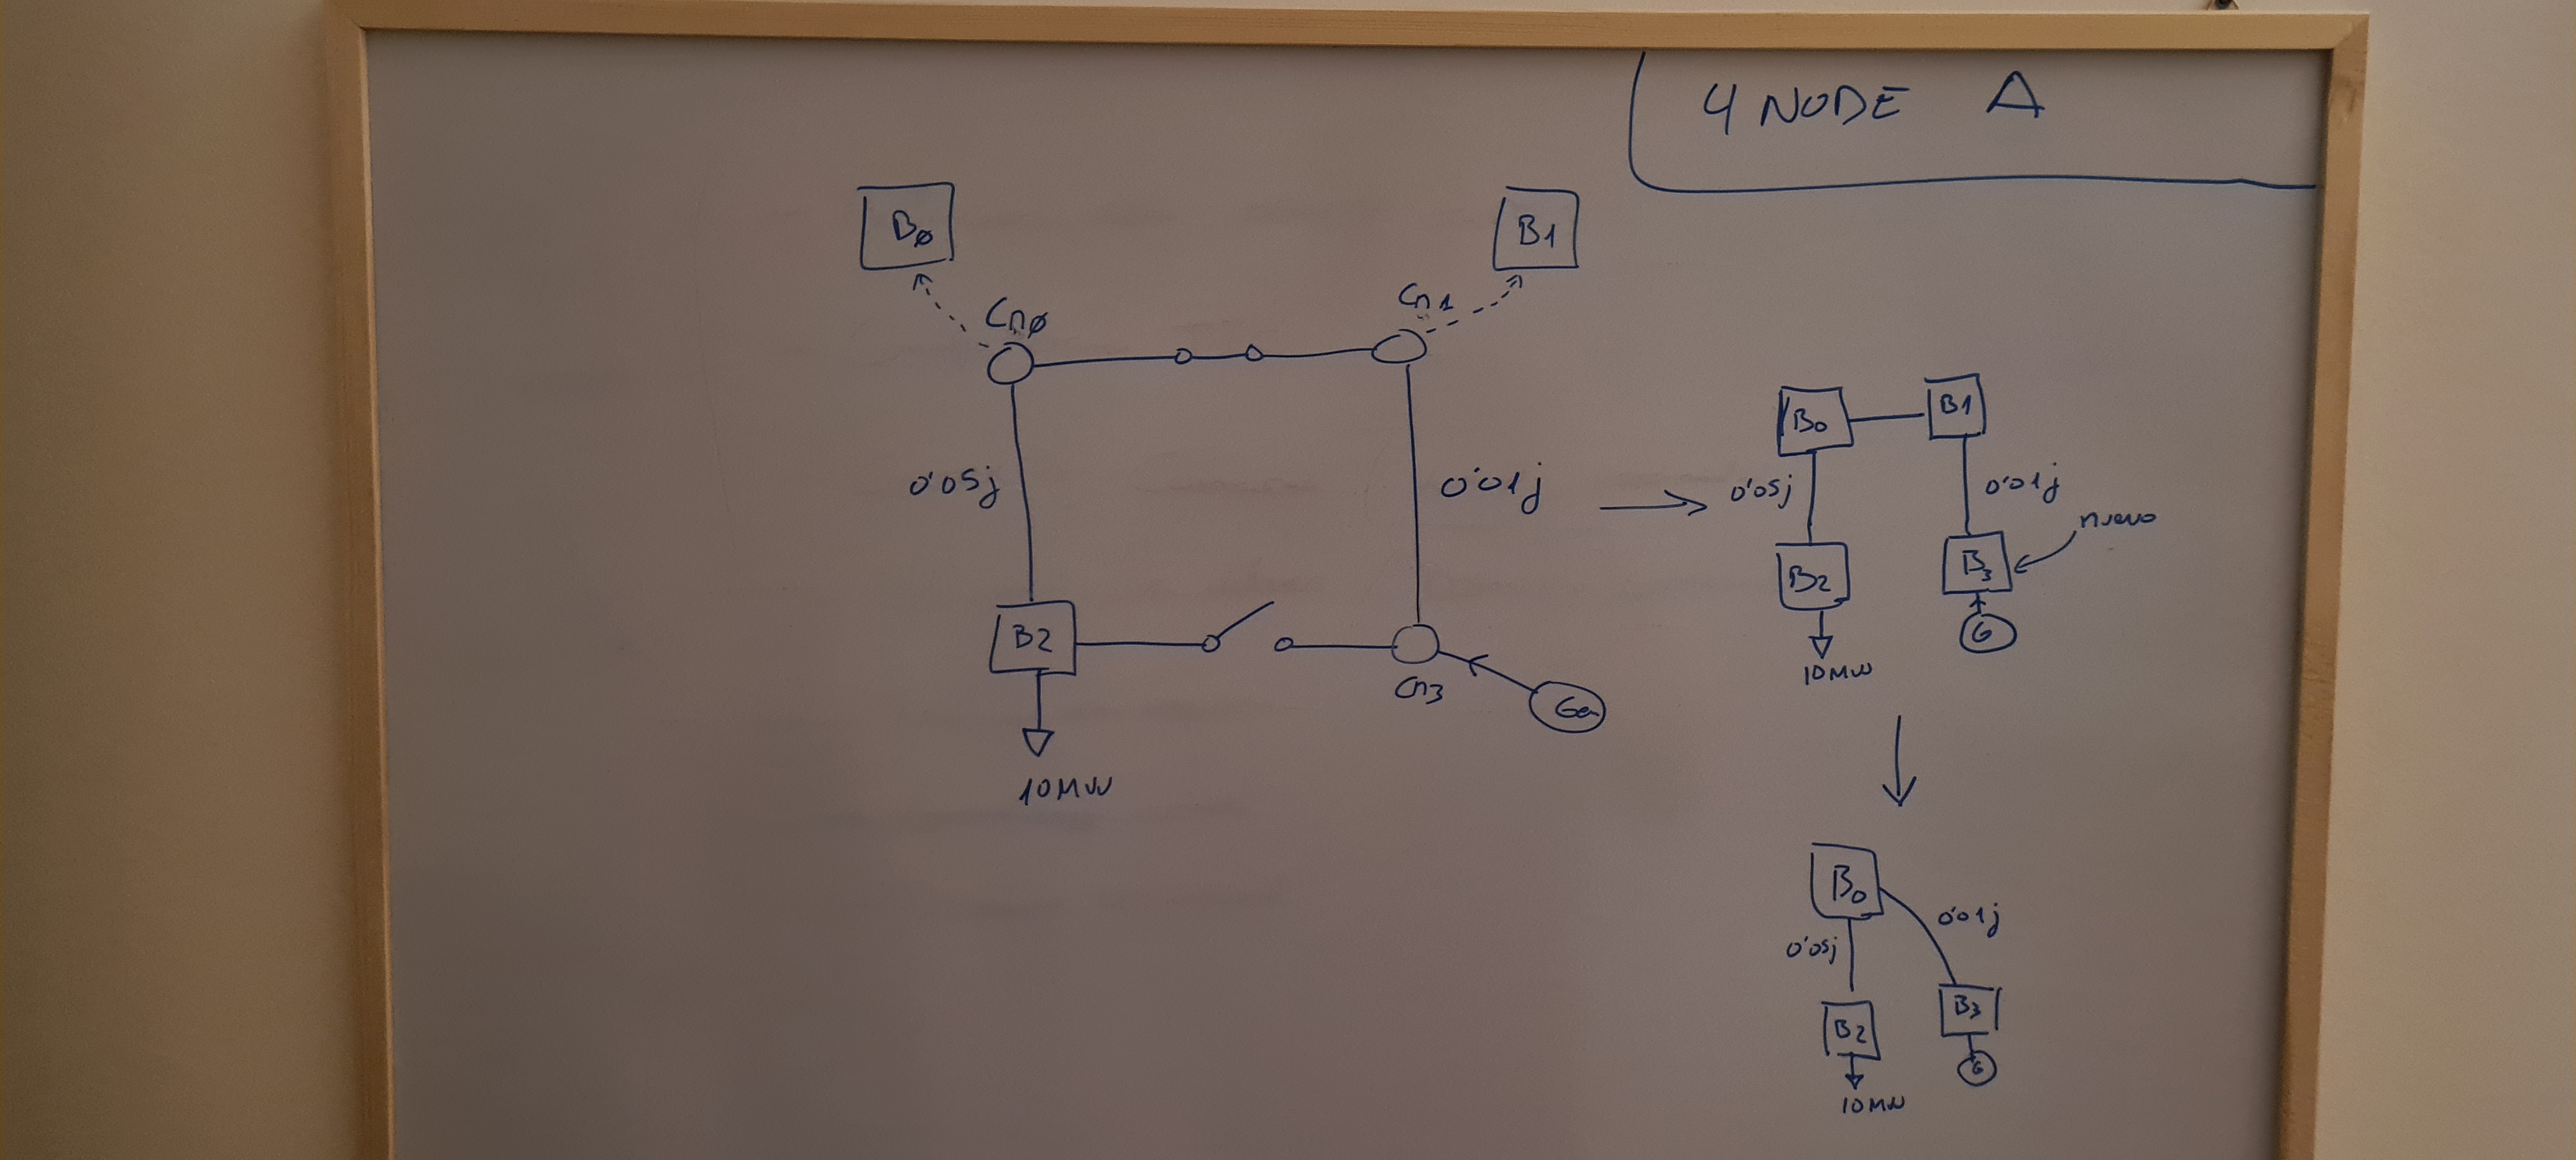 4 NODE A
B0
B1
Cn0
Cn1
0'05j
0'01j
B2
Cn3
Gen
10MW
B0
B1
0'05j
0'01j
nuevo
B2
B3
G
10MW
B0
0'01j
0'05j
B3
B2
G
10MW